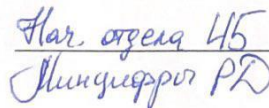 Нач. отдела ИБ
Минцифры РД